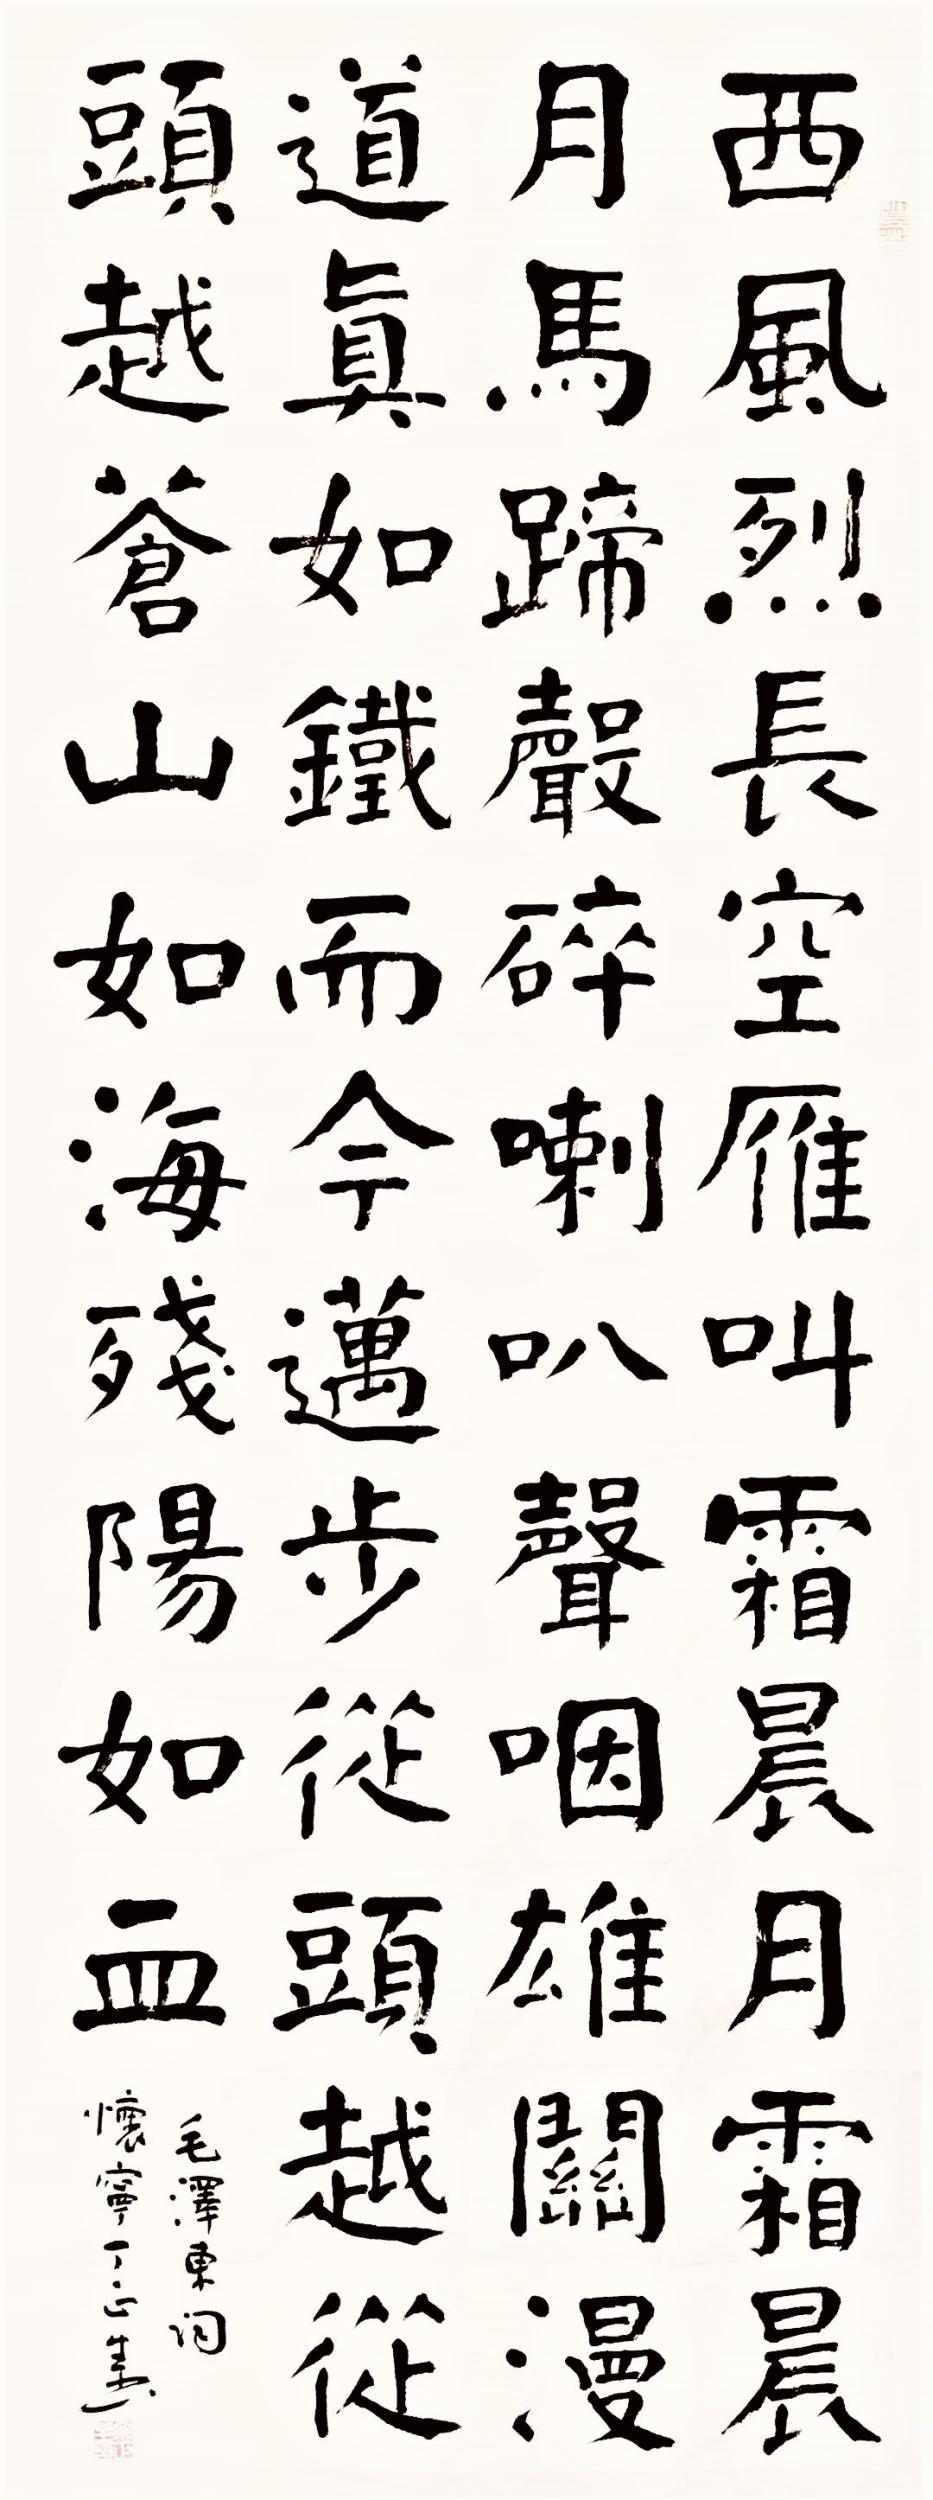 西風烈長空雁叫霜晨月霜晨
月馬蹄聲碎喇叭聲咽雄關漫
道真如鐵而今邁步從頭越從
頭越蒼山如海殘陽如血
毛澤東詞
懷寧丁正書